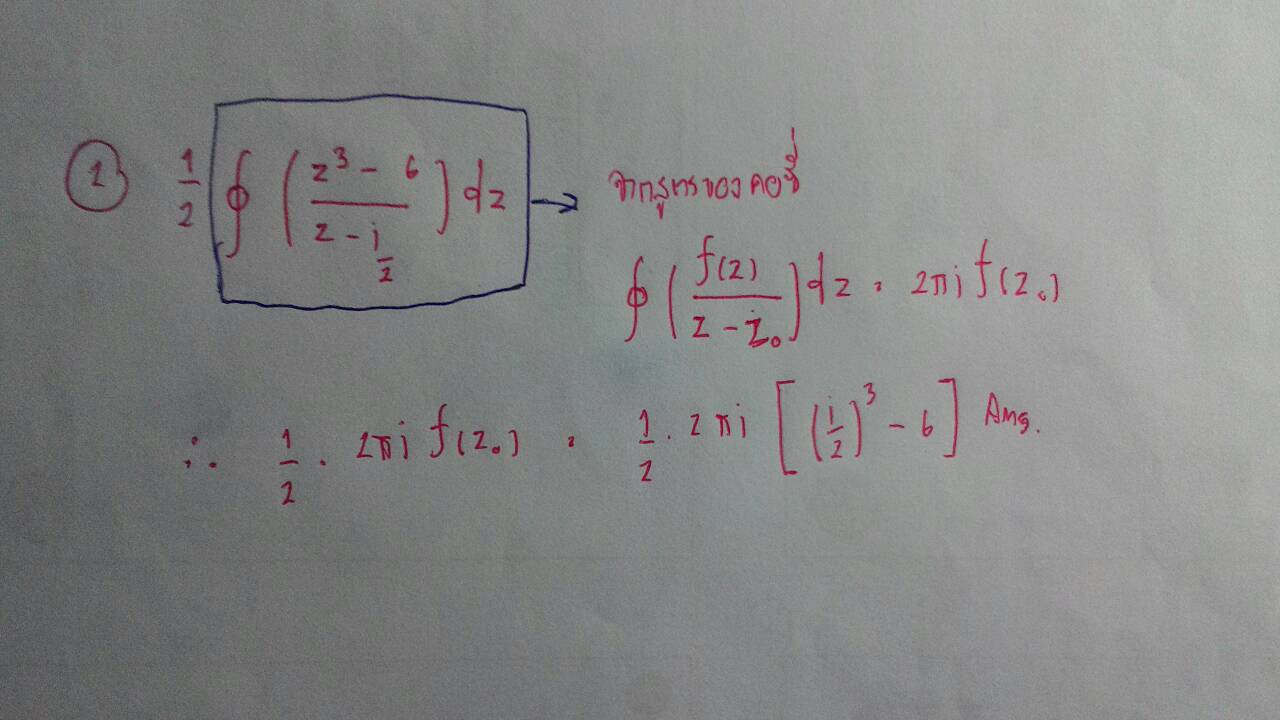 ① 1/2 ∮ ( (z³ - 6) / (z - i/2) ) dz → จากสูตรของคอชี่
∮ ( f(z) / (z - z₀) ) dz = 2πi f(z₀)
∴ 1/2 · 2πi f(z₀) = 1/2 · 2πi [ (i/2)³ - 6 ] Ans.